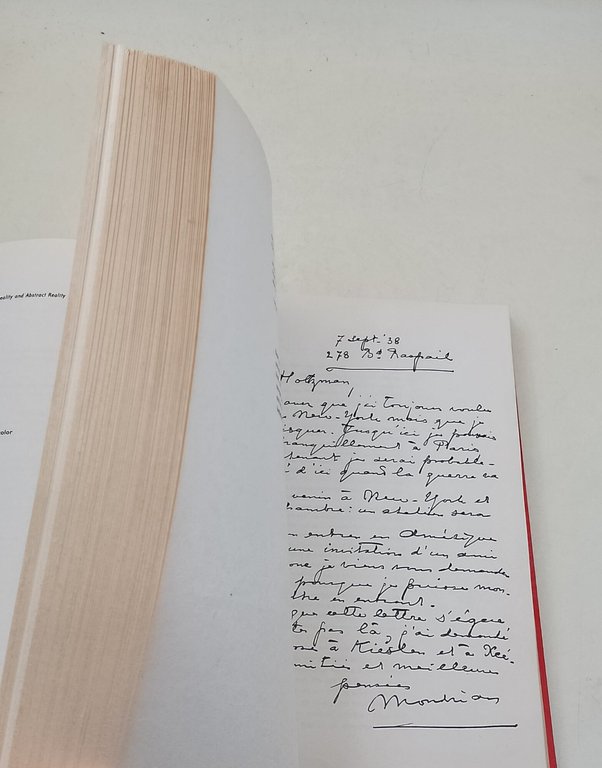 eality and Abstract Reality
olor
7 Sept. '38
278 Bd Raspail
Holtzman,
que j'ai toujours voulu
New-York mais que je
isquer. Jusqu'ici je pouvais
tranquillement à Paris
tenant je serai probable-
d'ici quand la guerre va
venir à New-York et
chambre: un atelier sera
entrer en Amérique
une invitation d'un ami
je viens vous demander
pourque je puisse mon-
tre en entrant.
que cette lettre s'égare
pas là, j'ai demandé
à Kiesler et à Xcé-
mitiés et meilleures
pensées
Mondrian